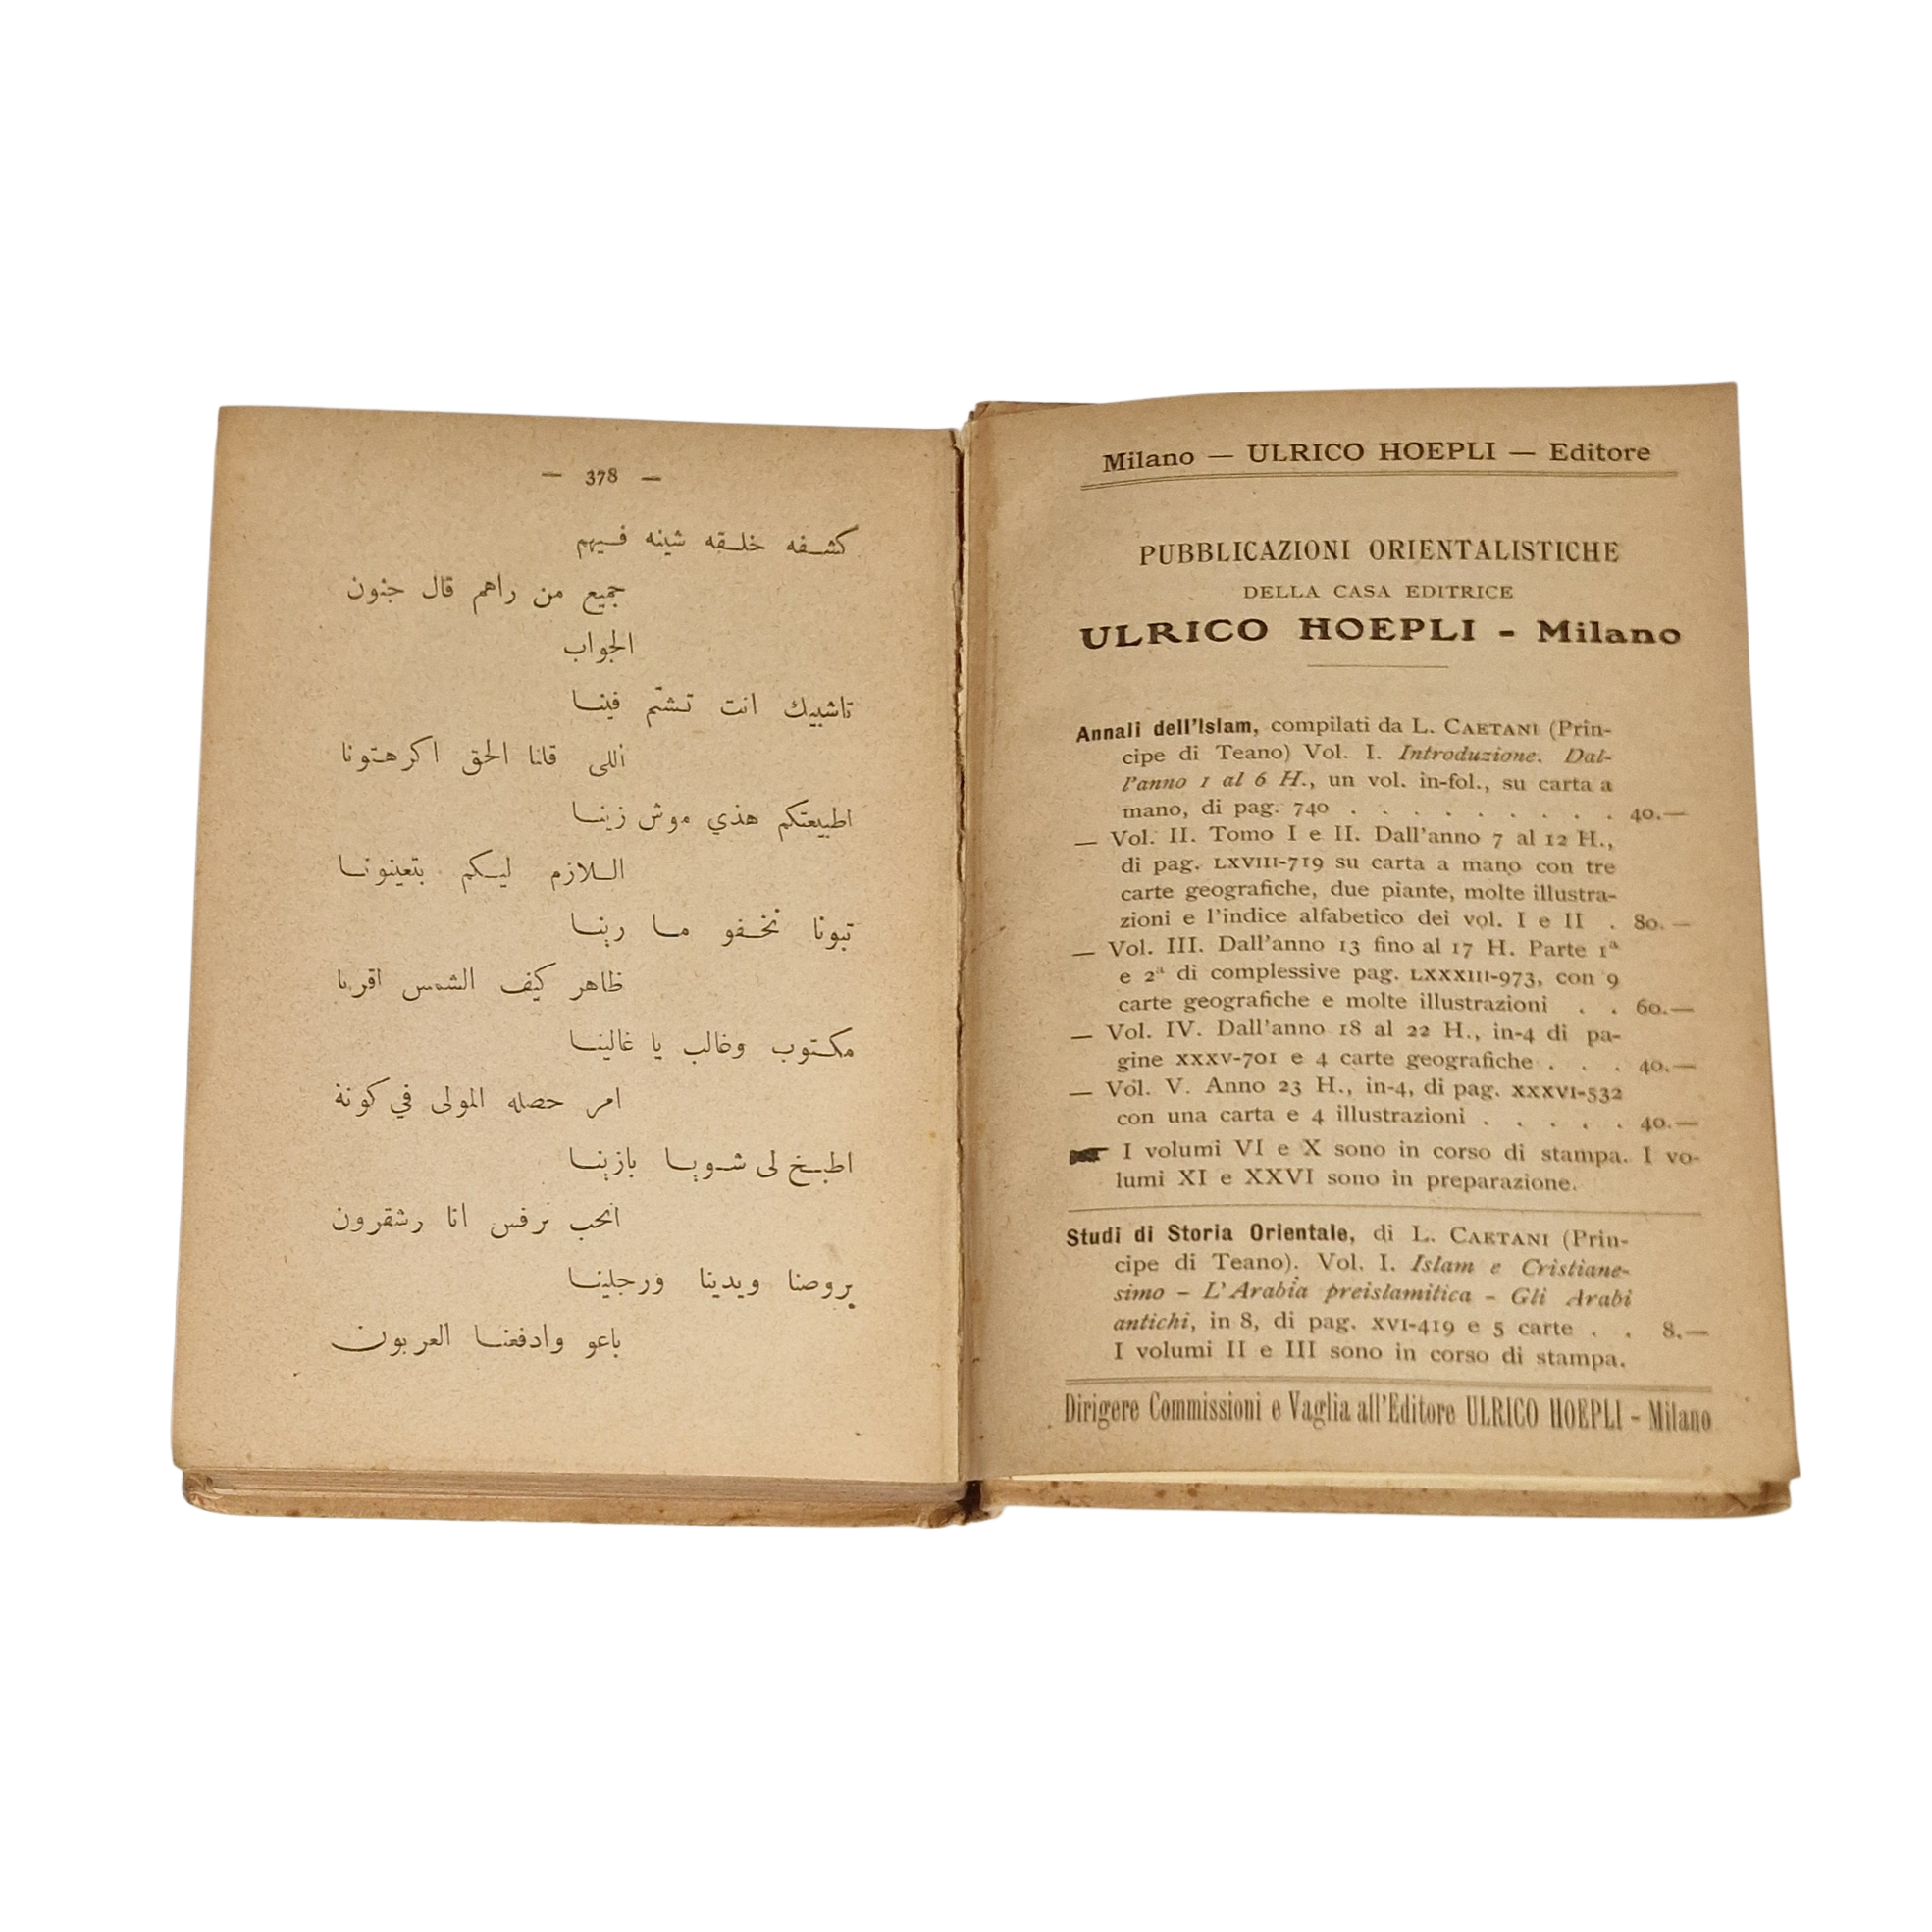 — 378 —
كشفه خلقه شينه فيهم
جميع من راهم قال جنون
الجواب
تاشبيك انت تشتم فينا
اللى قلنا الحق اكرهتونا
اطبيعتكم هذي موش زينا
اللازم ليكم بتعينونا
تبونا نخفو ما رينا
ظاهر كيف الشمس اقرنا
مكتوب وغالب يا غالينا
امر حصله المولى في كونة
اطبخ لى شويا بازينا
انحب نرفس انا رشقرون
بروصنا ويدينا ورجلينا
باعو وادفعنا العربون
Milano — ULRICO HOEPLI — Editore
PUBBLICAZIONI ORIENTALISTICHE
DELLA CASA EDITRICE
ULRICO HOEPLI - Milano
Annali dell'Islam, compilati da L. CAETANI (Prin-
cipe di Teano) Vol. I. Introduzione. Dal-
l'anno 1 al 6 H., un vol. in-fol., su carta a
mano, di pag. 740 . . . . . . . . . 40.—
— Vol. II. Tomo I e II. Dall'anno 7 al 12 H.,
di pag. LXVIII-719 su carta a mano con tre
carte geografiche, due piante, molte illustra-
zioni e l'indice alfabetico dei vol. I e II . 80.—
— Vol. III. Dall'anno 13 fino al 17 H. Parte 1ª
e 2ª di complessive pag. LXXXIII-973, con 9
carte geografiche e molte illustrazioni . . 60.—
— Vol. IV. Dall'anno 18 al 22 H., in-4 di pa-
gine XXXV-701 e 4 carte geografiche . . . 40.—
— Vol. V. Anno 23 H., in-4, di pag. XXXVI-532
con una carta e 4 illustrazioni . . . . . 40.—
☛ I volumi VI e X sono in corso di stampa. I vo-
lumi XI e XXVI sono in preparazione.
Studi di Storia Orientale, di L. CAETANI (Prin-
cipe di Teano). Vol. I. Islam e Cristiane-
simo - L'Arabia preislamitica - Gli Arabi
antichi, in 8, di pag. XVI-419 e 5 carte . . 8.—
I volumi II e III sono in corso di stampa.
Dirigere Commissioni e Vaglia all'Editore ULRICO HOEPLI - Milano